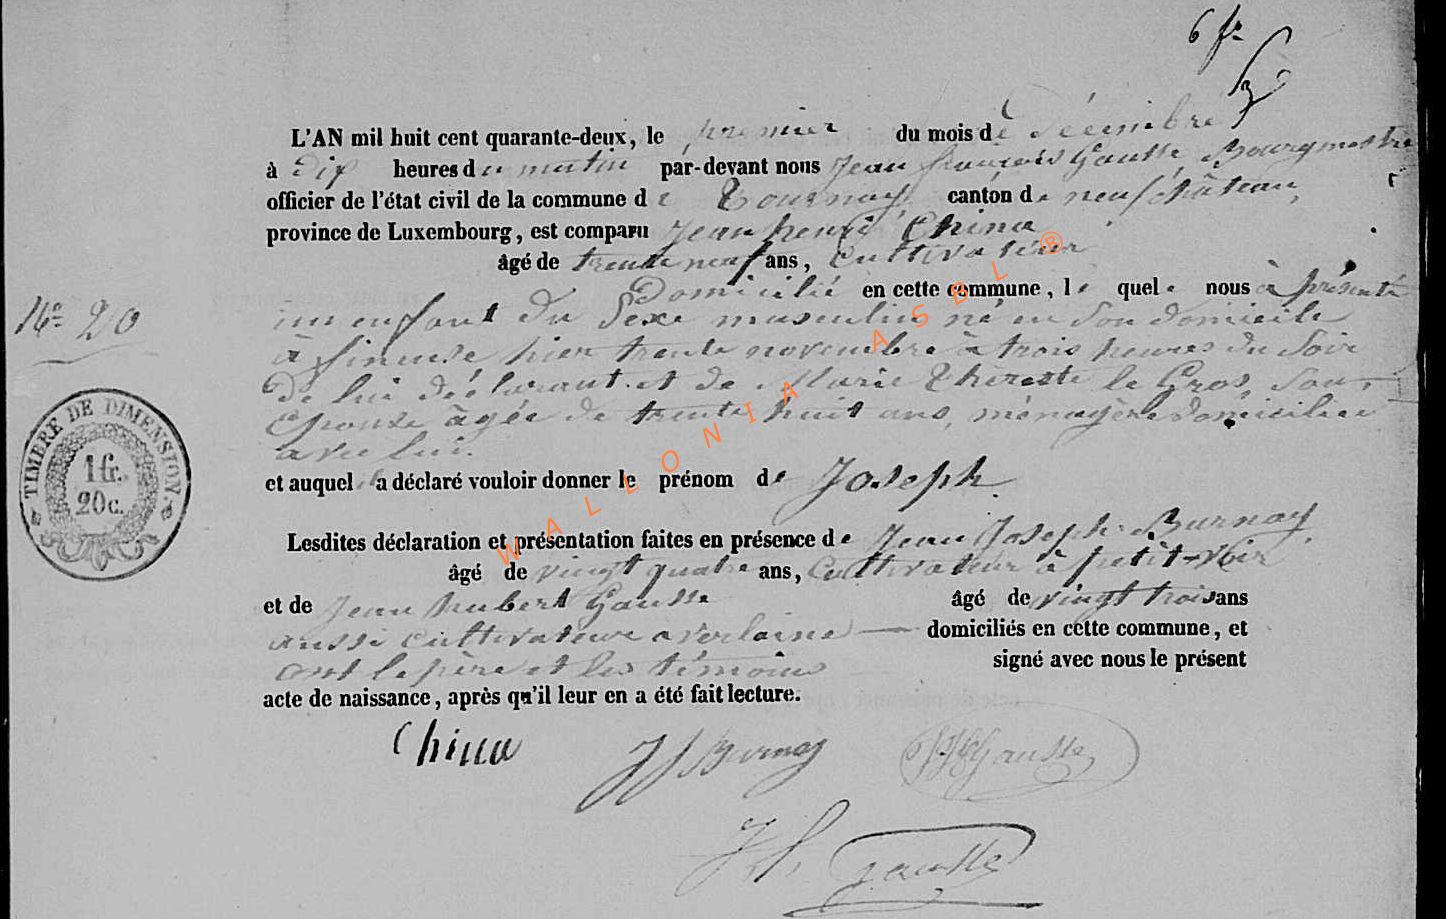 6 fr
L'AN mil huit cent quarante-deux, le premier du mois de décembre
à dix heures du matin par-devant nous Jean françois Gausse Bourgmestre
officier de l'état civil de la commune de Tournay canton de neufchâteau,
province de Luxembourg, est comparu Jean henri China
âgé de trente neuf ans, Cultivateur
Domicilié en cette commune, le quel nous à présenté
N° 20
un enfant du Sexe masculin né en Son domicile
à fineuse hier trente novembre à trois heures du Soir
de lui déclarant et de Marie Thereste le Gros Son
Epouse âgée de trente huit ans, ménagère domiciliée
avec lui.
TIMBRE DE DIMENSION.
1 fr.
20 c.
et auquel il a déclaré vouloir donner le prénom de Joseph
Lesdites déclaration et présentation faites en présence de Jean Joseph Burnay
âgé de vingt quatre ans, Cultivateur à petit-voir
et de Jean hubert Gausse âgé de vingt trois ans
aussi cultivateur a verlaine domiciliés en cette commune, et
ont le père et les témoins signé avec nous le présent
acte de naissance, après qu'il leur en a été fait lecture.
China JJ Burnay JH Gausse
J f Gausse
WALLONIA ASBL ®